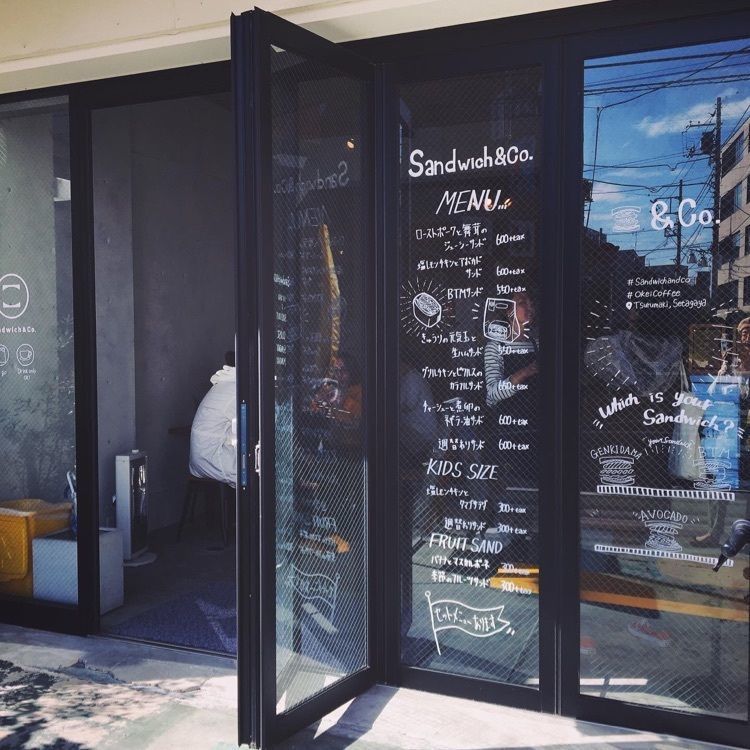 Sandwich&Co.
MENU...
ローストポークと舞茸の
ジューシーサンド 600+tax
塩レモンチキンとアボカド
サンド 600+tax
BTMサンド 550+tax
きゅうりの元気玉と
生ハムサンド 550+tax
グリルチキンとピクルスの
カラフルサンド 650+tax
チャーシューと煮卵の
ネギラー油サンド 600+tax
週替わりサンド 600+tax
KIDS SIZE
塩レモンチキンと
300+tax
週替わりサンド 300+tax
FRUIT SAND
バナナとマスカルポーネ 300+tax
季節のフルーツサンド 300+tax
セットメニューあります
& Co.
#Sandwichandco
#OkeiCoffee
Tsurumaki, Setagaya
Which is your
Sandwich?
GENKIDAMA
BTM
AVOCADO
ndwich&Co.
Drink only
OK!